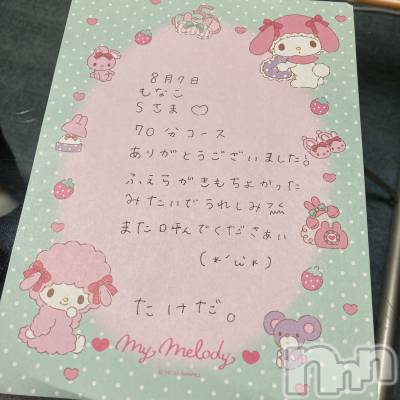 8月7日
もなこ
Sさま♡
70分コース
ありがとうございました!
ふぇらがきもちよかった
みたいでうれしみ
また呼んでくださぁい
(*´ω`*)
たけだ。
My Melody
nnn